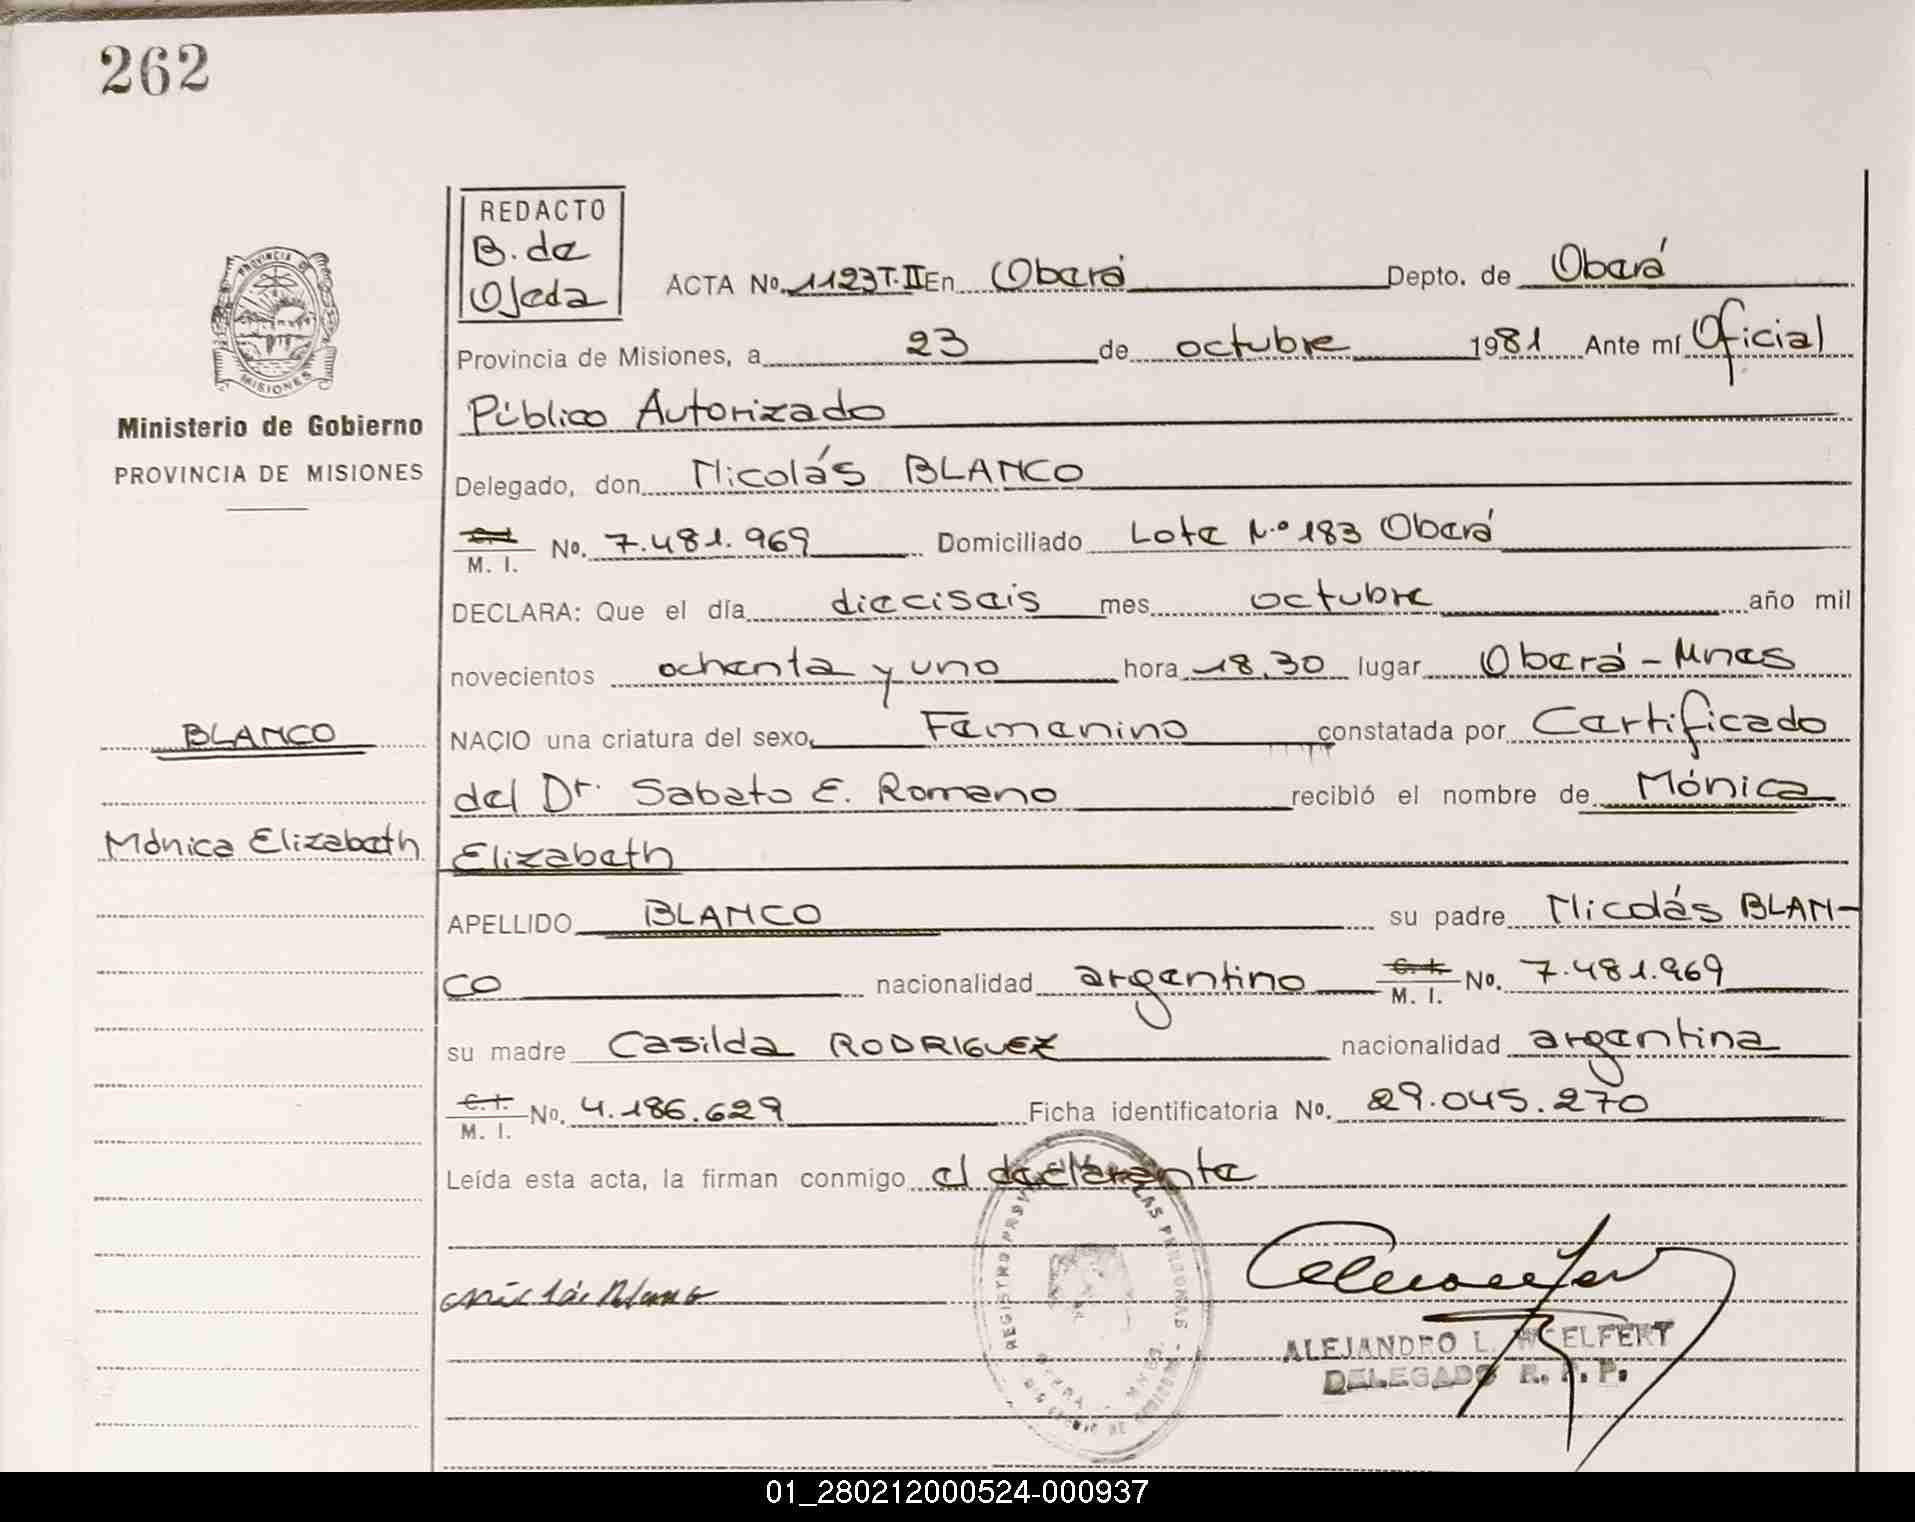 262
REDACTO
B. de
Ojeda
ACTA No. 1123 T. II En Oberá Depto. de Oberá
Provincia de Misiones, a 23 de octubre 1981 Ante mí Oficial
Público Autorizado
Ministerio de Gobierno
PROVINCIA DE MISIONES
PROVINCIA DE
MISIONES
Delegado, don Nicolás BLANCO
C. I.
M. I. No. 7.481.969 Domiciliado Lote N.º 183 Oberá
DECLARA: Que el día dieciseis mes octubre año mil
novecientos ochenta y uno hora 18,30 lugar Oberá - Mnes
BLANCO
NACIO una criatura del sexo, Femenino constatada por Certificado
del Dr. Sabato E. Romano recibió el nombre de Mónica
Mónica Elizabeth
Elizabeth
APELLIDO BLANCO su padre Nicolás BLAN-
CO nacionalidad argentino C. I. M. I. No. 7.481.969
su madre Casilda RODRIGUEZ nacionalidad argentina
C. I.
M. I. No. 4.186.629 Ficha identificatoria No. 29.045.270
Leída esta acta, la firman conmigo el declarante
Nicolás Blanco
REGISTRO PROV. DE LAS PERSONAS
ALEJANDRO L.
DELEGADO R. P. P.
01_280212000524-000937